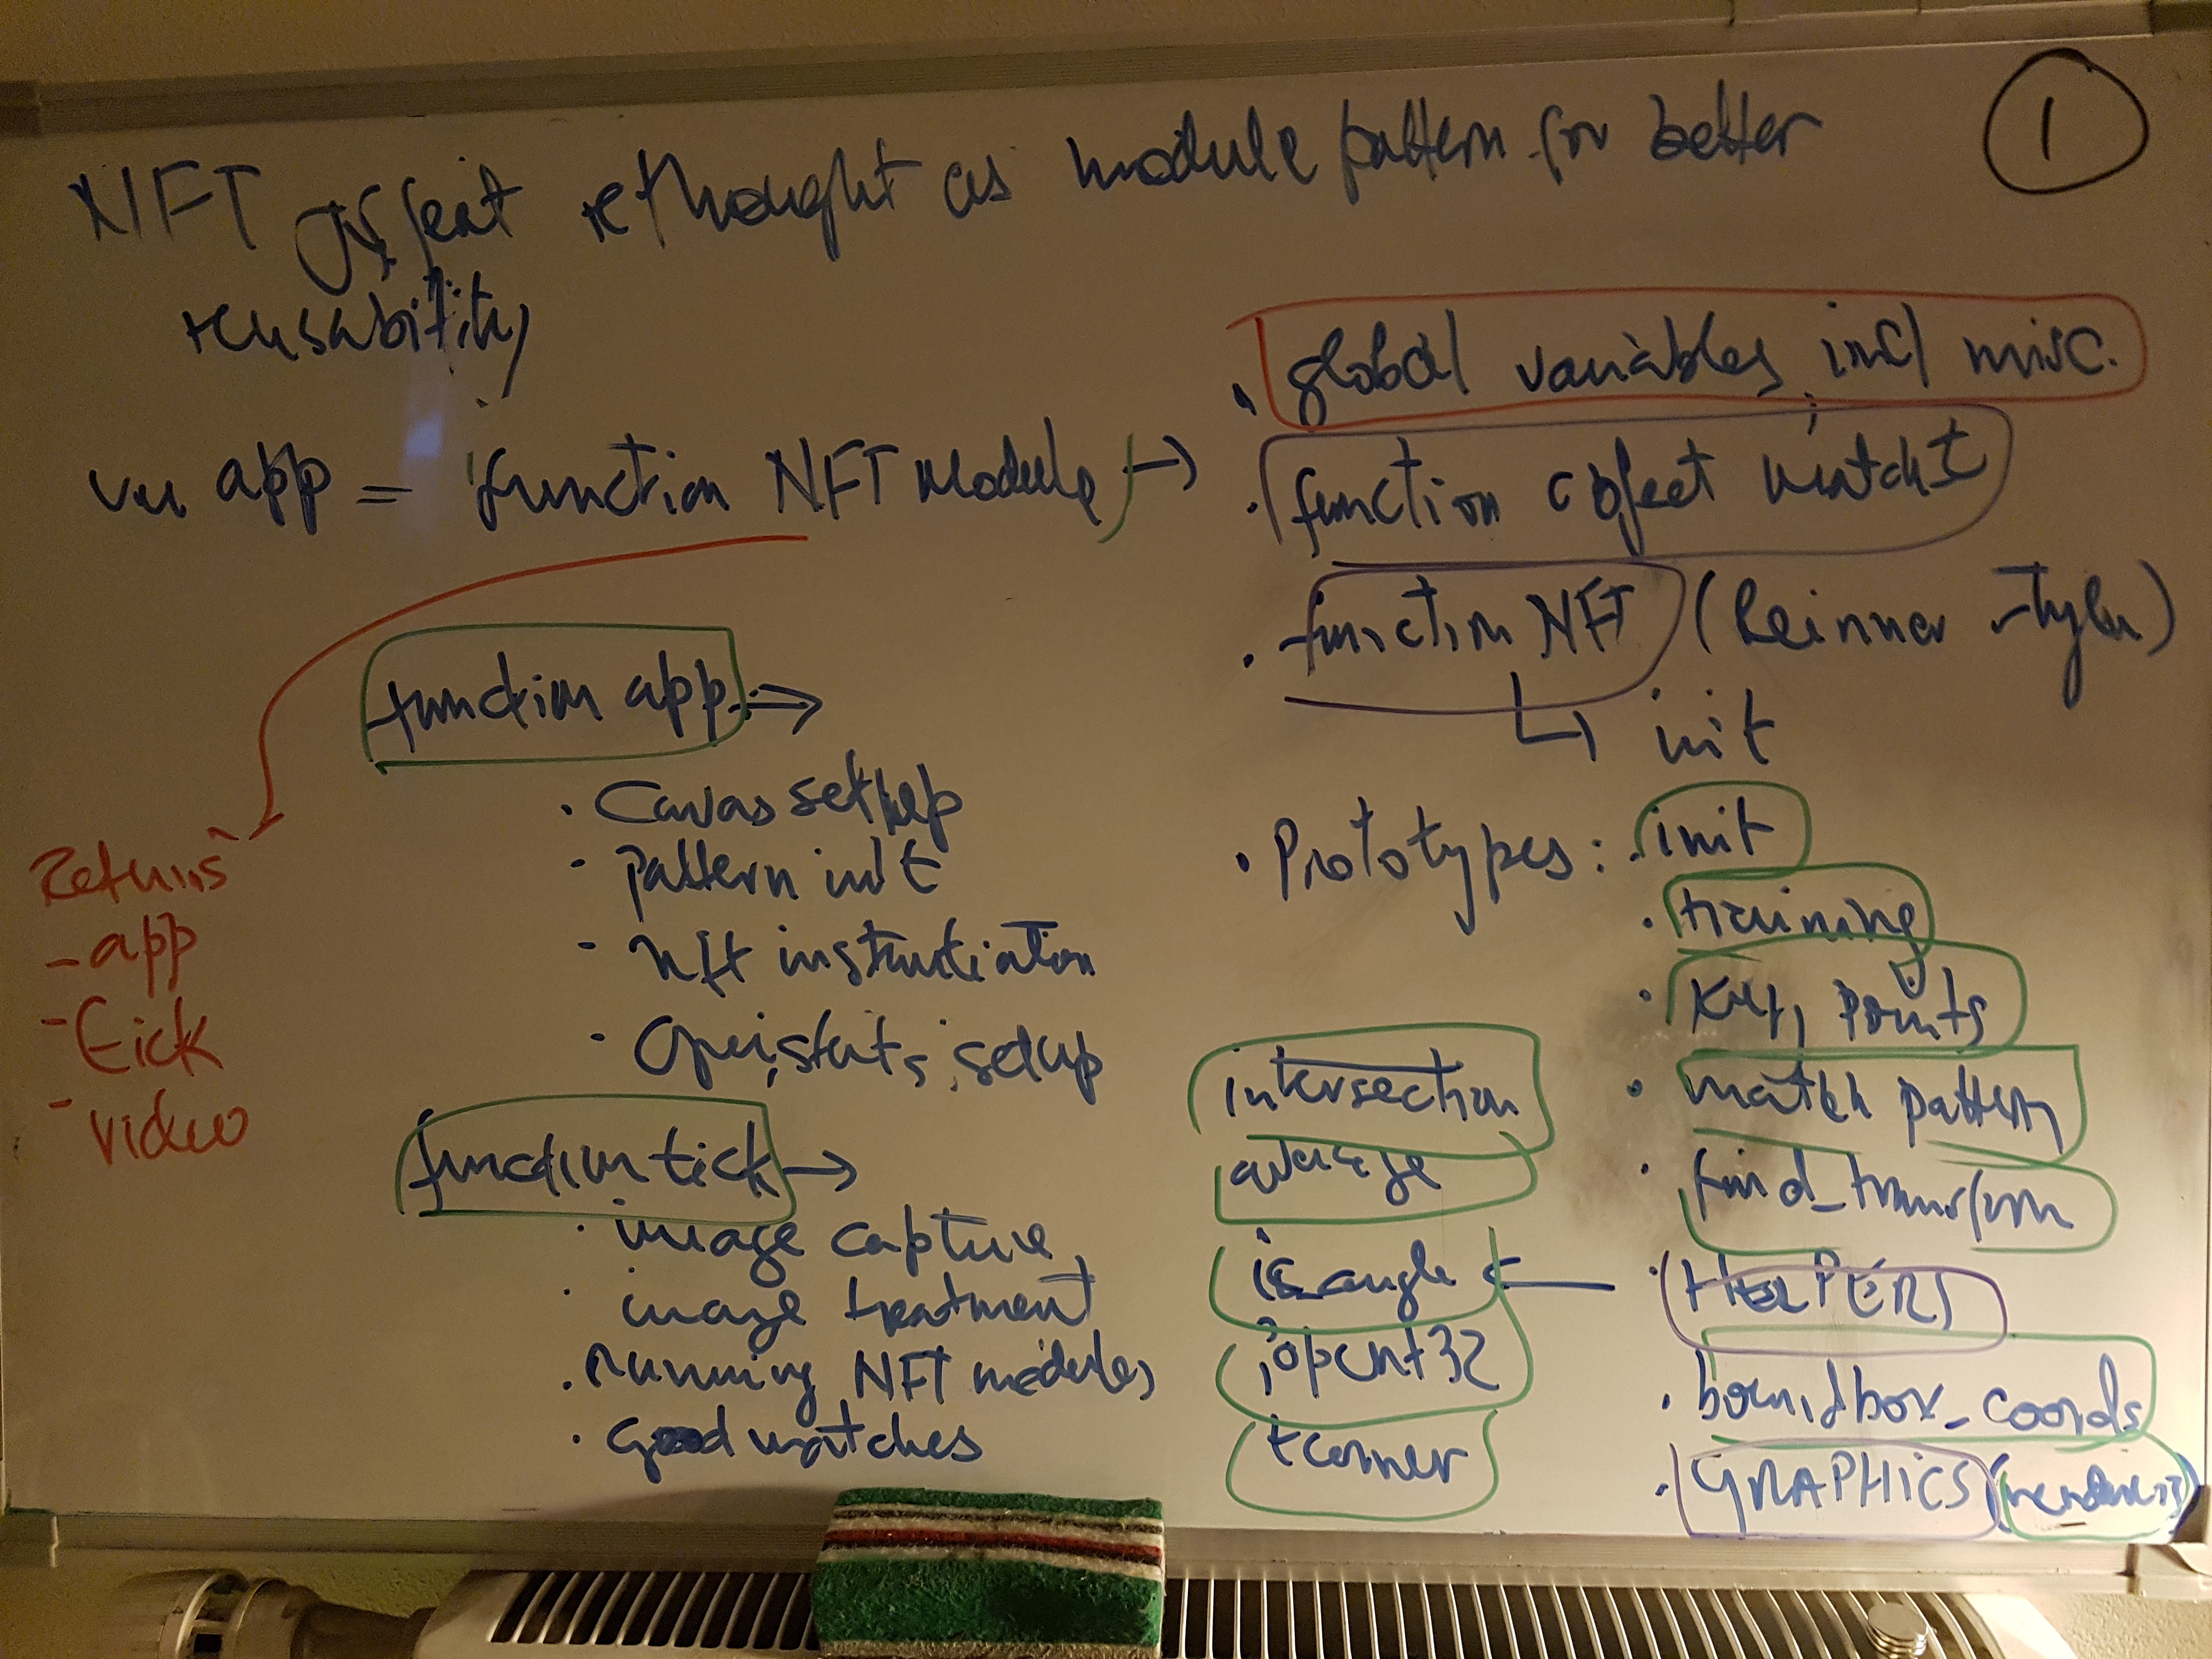 1
NFT jsfeat rethought as module pattern for better
reusability
app = function NFT Module →
• global variables, incl misc.
• function object match_t
• function NFT (
↳ init
• Prototypes: • init
• training
• key points
• match pattern
• find_transform
• HELPERS
• bound box_coords
• GRAPHICS
intersection
average
is_angle ←
tcorner
function app ⇒
• Canvas setup
• pattern init
- nft instantiation
• setup
function tick →
• image capture
• image treatment
• Running NFT modules
• Good matches
Returns
- app
- tick
- video